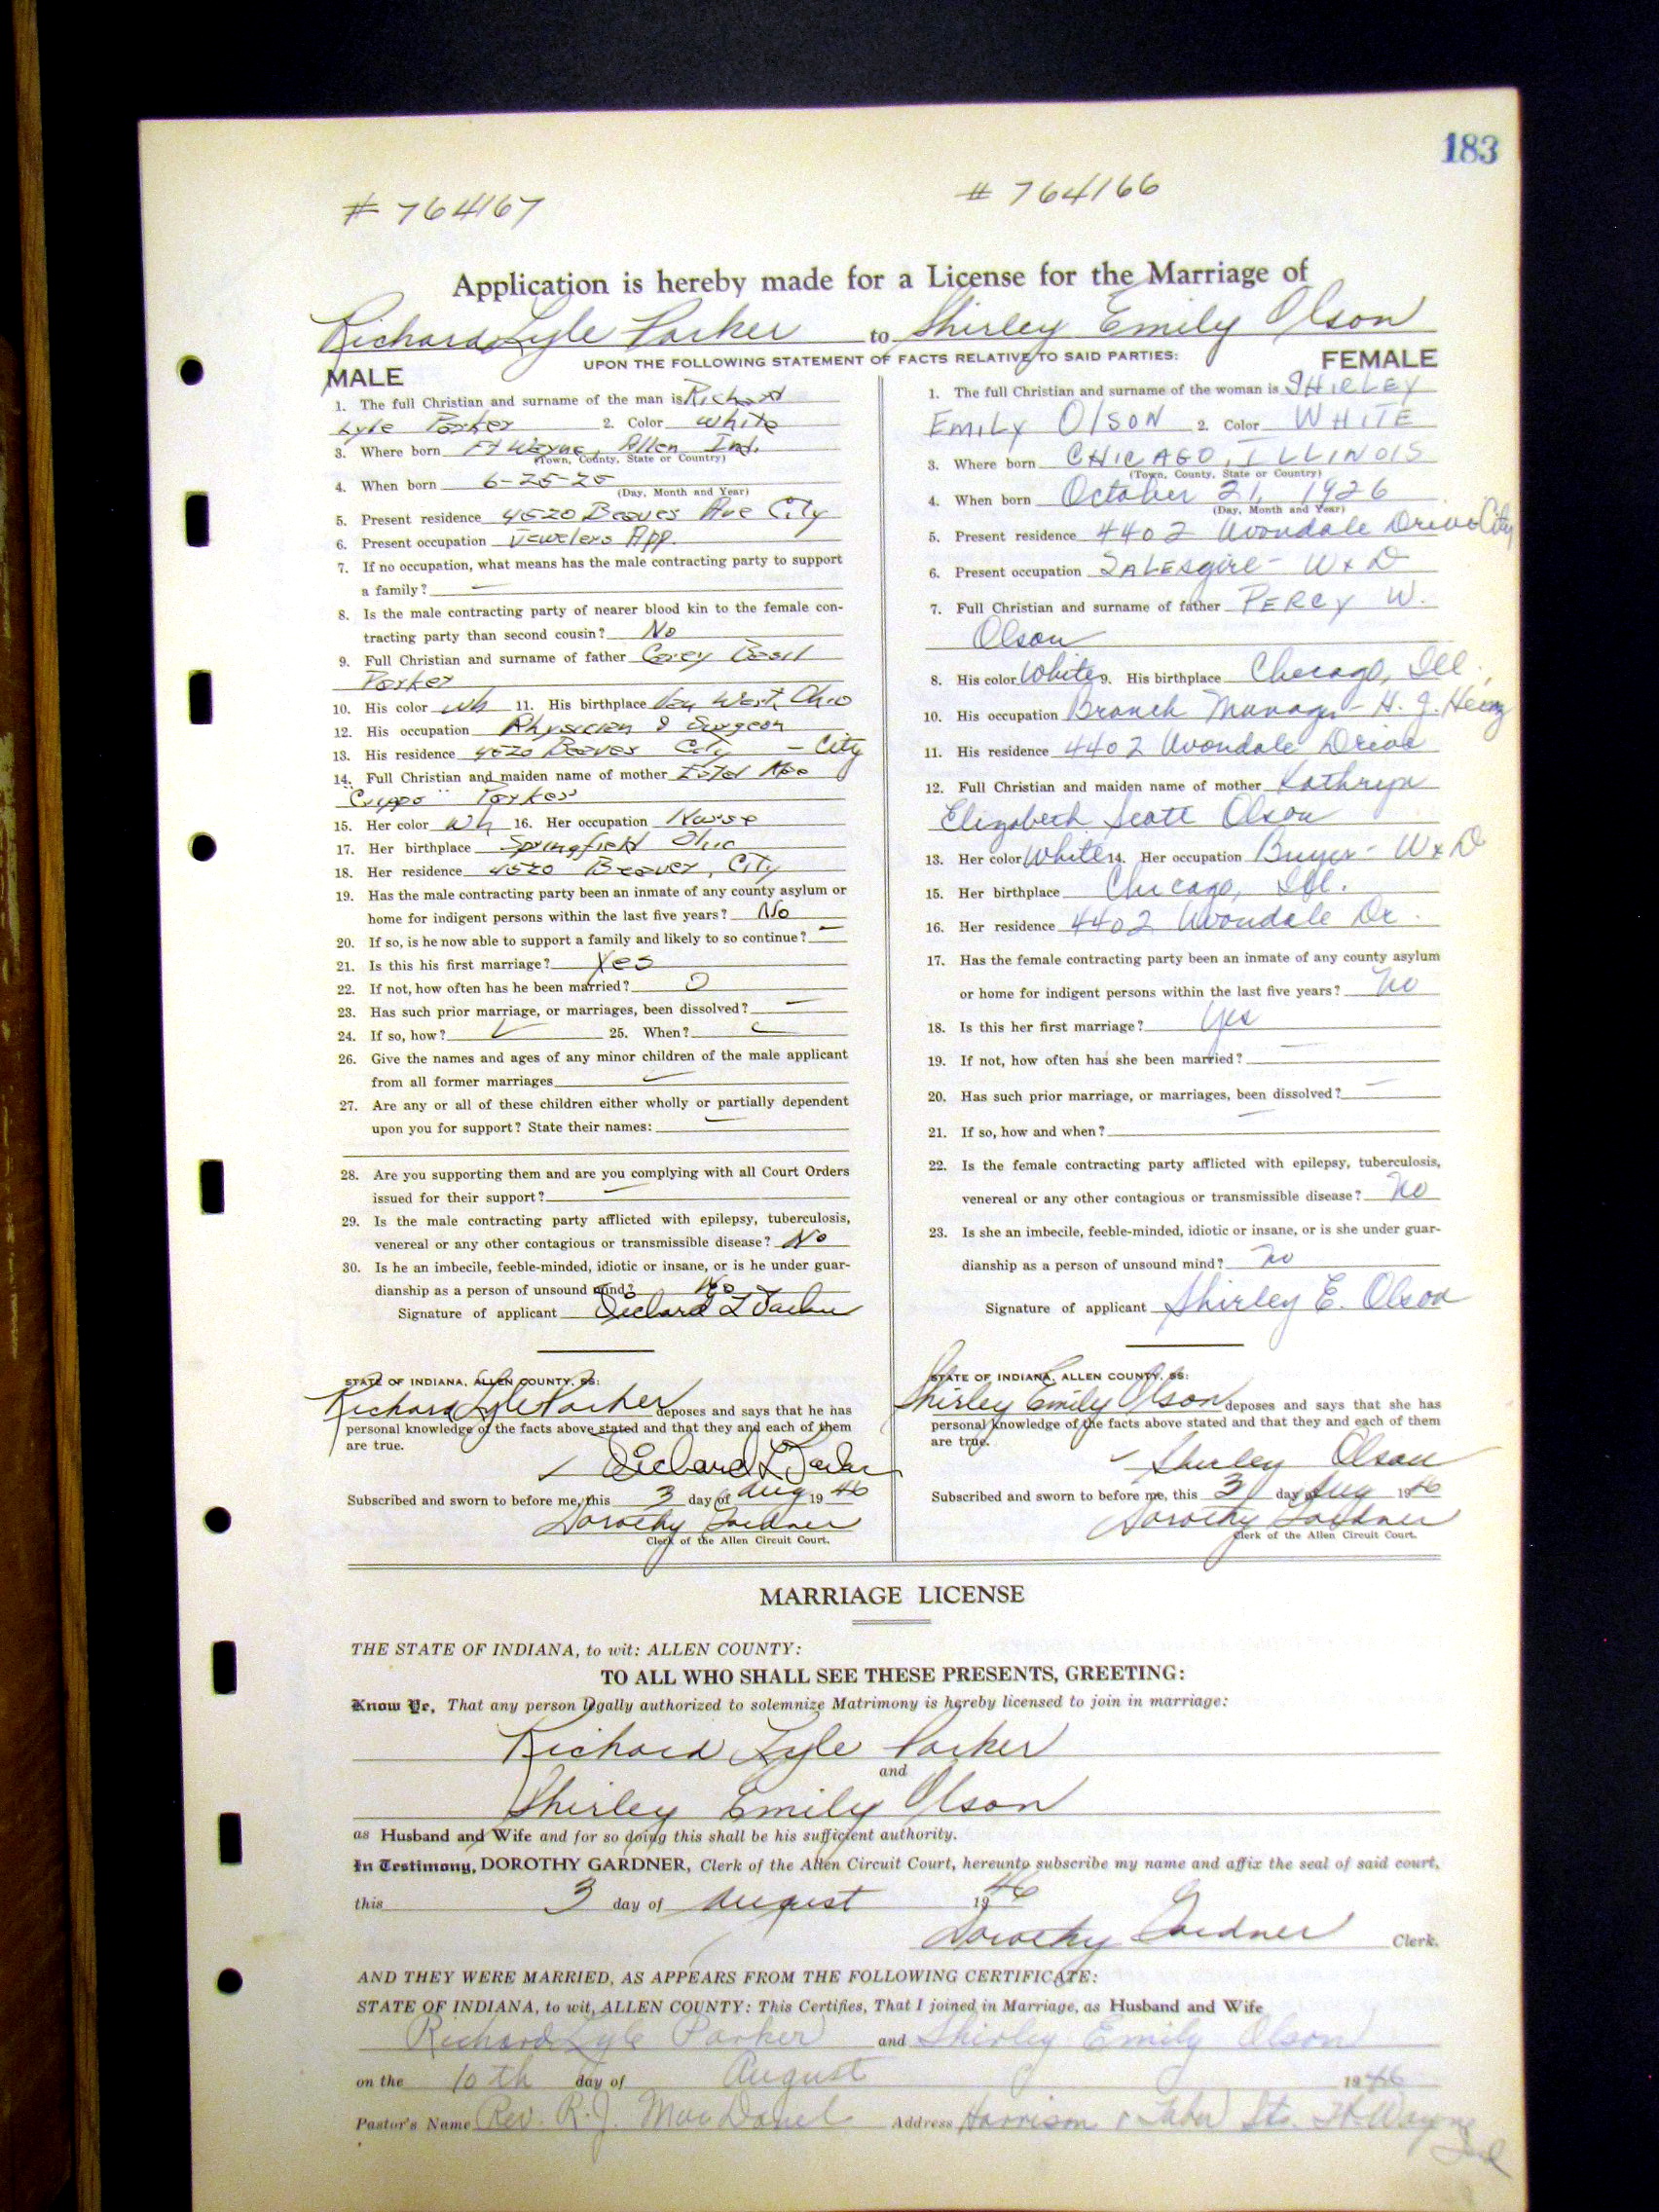 183
# 764167
# 764166
Application is hereby made for a License for the Marriage of
Richard Lyle Parker to Shirley Emily Olson
UPON THE FOLLOWING STATEMENT OF FACTS RELATIVE TO SAID PARTIES:
MALE
1. The full Christian and surname of the man is Richard
Lyle Parker 2. Color White
3. Where born Ft Wayne, Allen Ind.
(Town, County, State or Country)
4. When born 6-25-25
(Day, Month and Year)
5. Present residence 4520 Beaver Ave City
6. Present occupation Jewelers App.
7. If no occupation, what means has the male contracting party to support
a family? —
8. Is the male contracting party of nearer blood kin to the female con-
tracting party than second cousin? No
9. Full Christian and surname of father Corey Basil
Parker
10. His color Wh 11. His birthplace Van Wert, Ohio
12. His occupation Physician & Surgeon
13. His residence 4520 Beaver City — City
14. Full Christian and maiden name of mother Mae
"Cripps" Parker
15. Her color Wh 16. Her occupation Nurse
17. Her birthplace Springfield Ohio
18. Her residence 4520 Beaver, City
19. Has the male contracting party been an inmate of any county asylum or
home for indigent persons within the last five years? No
20. If so, is he now able to support a family and likely to so continue? —
21. Is this his first marriage? Yes
22. If not, how often has he been married? 0
23. Has such prior marriage, or marriages, been dissolved? —
24. If so, how? 25. When?
26. Give the names and ages of any minor children of the male applicant
from all former marriages
27. Are any or all of these children either wholly or partially dependent
upon you for support? State their names:
28. Are you supporting them and are you complying with all Court Orders
issued for their support? —
29. Is the male contracting party afflicted with epilepsy, tuberculosis,
venereal or any other contagious or transmissible disease? No
30. Is he an imbecile, feeble-minded, idiotic or insane, or is he under guar-
dianship as a person of unsound mind? No
Signature of applicant Richard L Parker
STATE OF INDIANA, ALLEN COUNTY, SS:
Richard Lyle Parker deposes and says that he has
personal knowledge of the facts above stated and that they and each of them
are true.
Richard L Parker
Subscribed and sworn to before me, this 3 day of Aug 1946
Dorothy Gardner
Clerk of the Allen Circuit Court.
FEMALE
1. The full Christian and surname of the woman is SHIRLEY
EMILY OlSON 2. Color WHITE
3. Where born CHICAGO, ILLINOIS
(Town, County, State or Country)
4. When born October 21, 1926
(Day, Month and Year)
5. Present residence 4402 Avondale Drive City
6. Present occupation SALESgirl - W & D
7. Full Christian and surname of father PERCY W.
Olson
8. His color White 9. His birthplace Chicago, Ill.
10. His occupation Branch Manager - H. J. Heinz
11. His residence 4402 Avondale Drive
12. Full Christian and maiden name of mother Kathryn
Elizabeth Scott Olson
13. Her color White 14. Her occupation Buyer - W & D
15. Her birthplace Chicago, Ill.
16. Her residence 4402 Avondale Dr.
17. Has the female contracting party been an inmate of any county asylum
or home for indigent persons within the last five years? No
18. Is this her first marriage? Yes
19. If not, how often has she been married? —
20. Has such prior marriage, or marriages, been dissolved? —
21. If so, how and when? —
22. Is the female contracting party afflicted with epilepsy, tuberculosis,
venereal or any other contagious or transmissible disease? No
23. Is she an imbecile, feeble-minded, idiotic or insane, or is she under guar-
dianship as a person of unsound mind? No
Signature of applicant Shirley E. Olson
STATE OF INDIANA, ALLEN COUNTY, SS:
Shirley Emily Olson deposes and says that she has
personal knowledge of the facts above stated and that they and each of them
are true.
Shirley Olson
Subscribed and sworn to before me, this 3 day of Aug 1946
Dorothy Gardner
Clerk of the Allen Circuit Court.
MARRIAGE LICENSE
THE STATE OF INDIANA, to wit: ALLEN COUNTY:
TO ALL WHO SHALL SEE THESE PRESENTS, GREETING:
Know Ye, That any person legally authorized to solemnize Matrimony is hereby licensed to join in marriage:
Richard Lyle Parker
and
Shirley Emily Olson
as Husband and Wife and for so doing this shall be his sufficient authority.
In Testimony, DOROTHY GARDNER, Clerk of the Allen Circuit Court, hereunto subscribe my name and affix the seal of said court,
this 3 day of August 1946
Dorothy Gardner Clerk.
AND THEY WERE MARRIED, AS APPEARS FROM THE FOLLOWING CERTIFICATE:
STATE OF INDIANA, to wit, ALLEN COUNTY: This Certifies, That I joined in Marriage, as Husband and Wife
Richard Lyle Parker and Shirley Emily Olson
on the 10th day of August 1946
Pastor's Name Rev. R. J. Address Harrison & Sts. Ft. Wayne
Ind